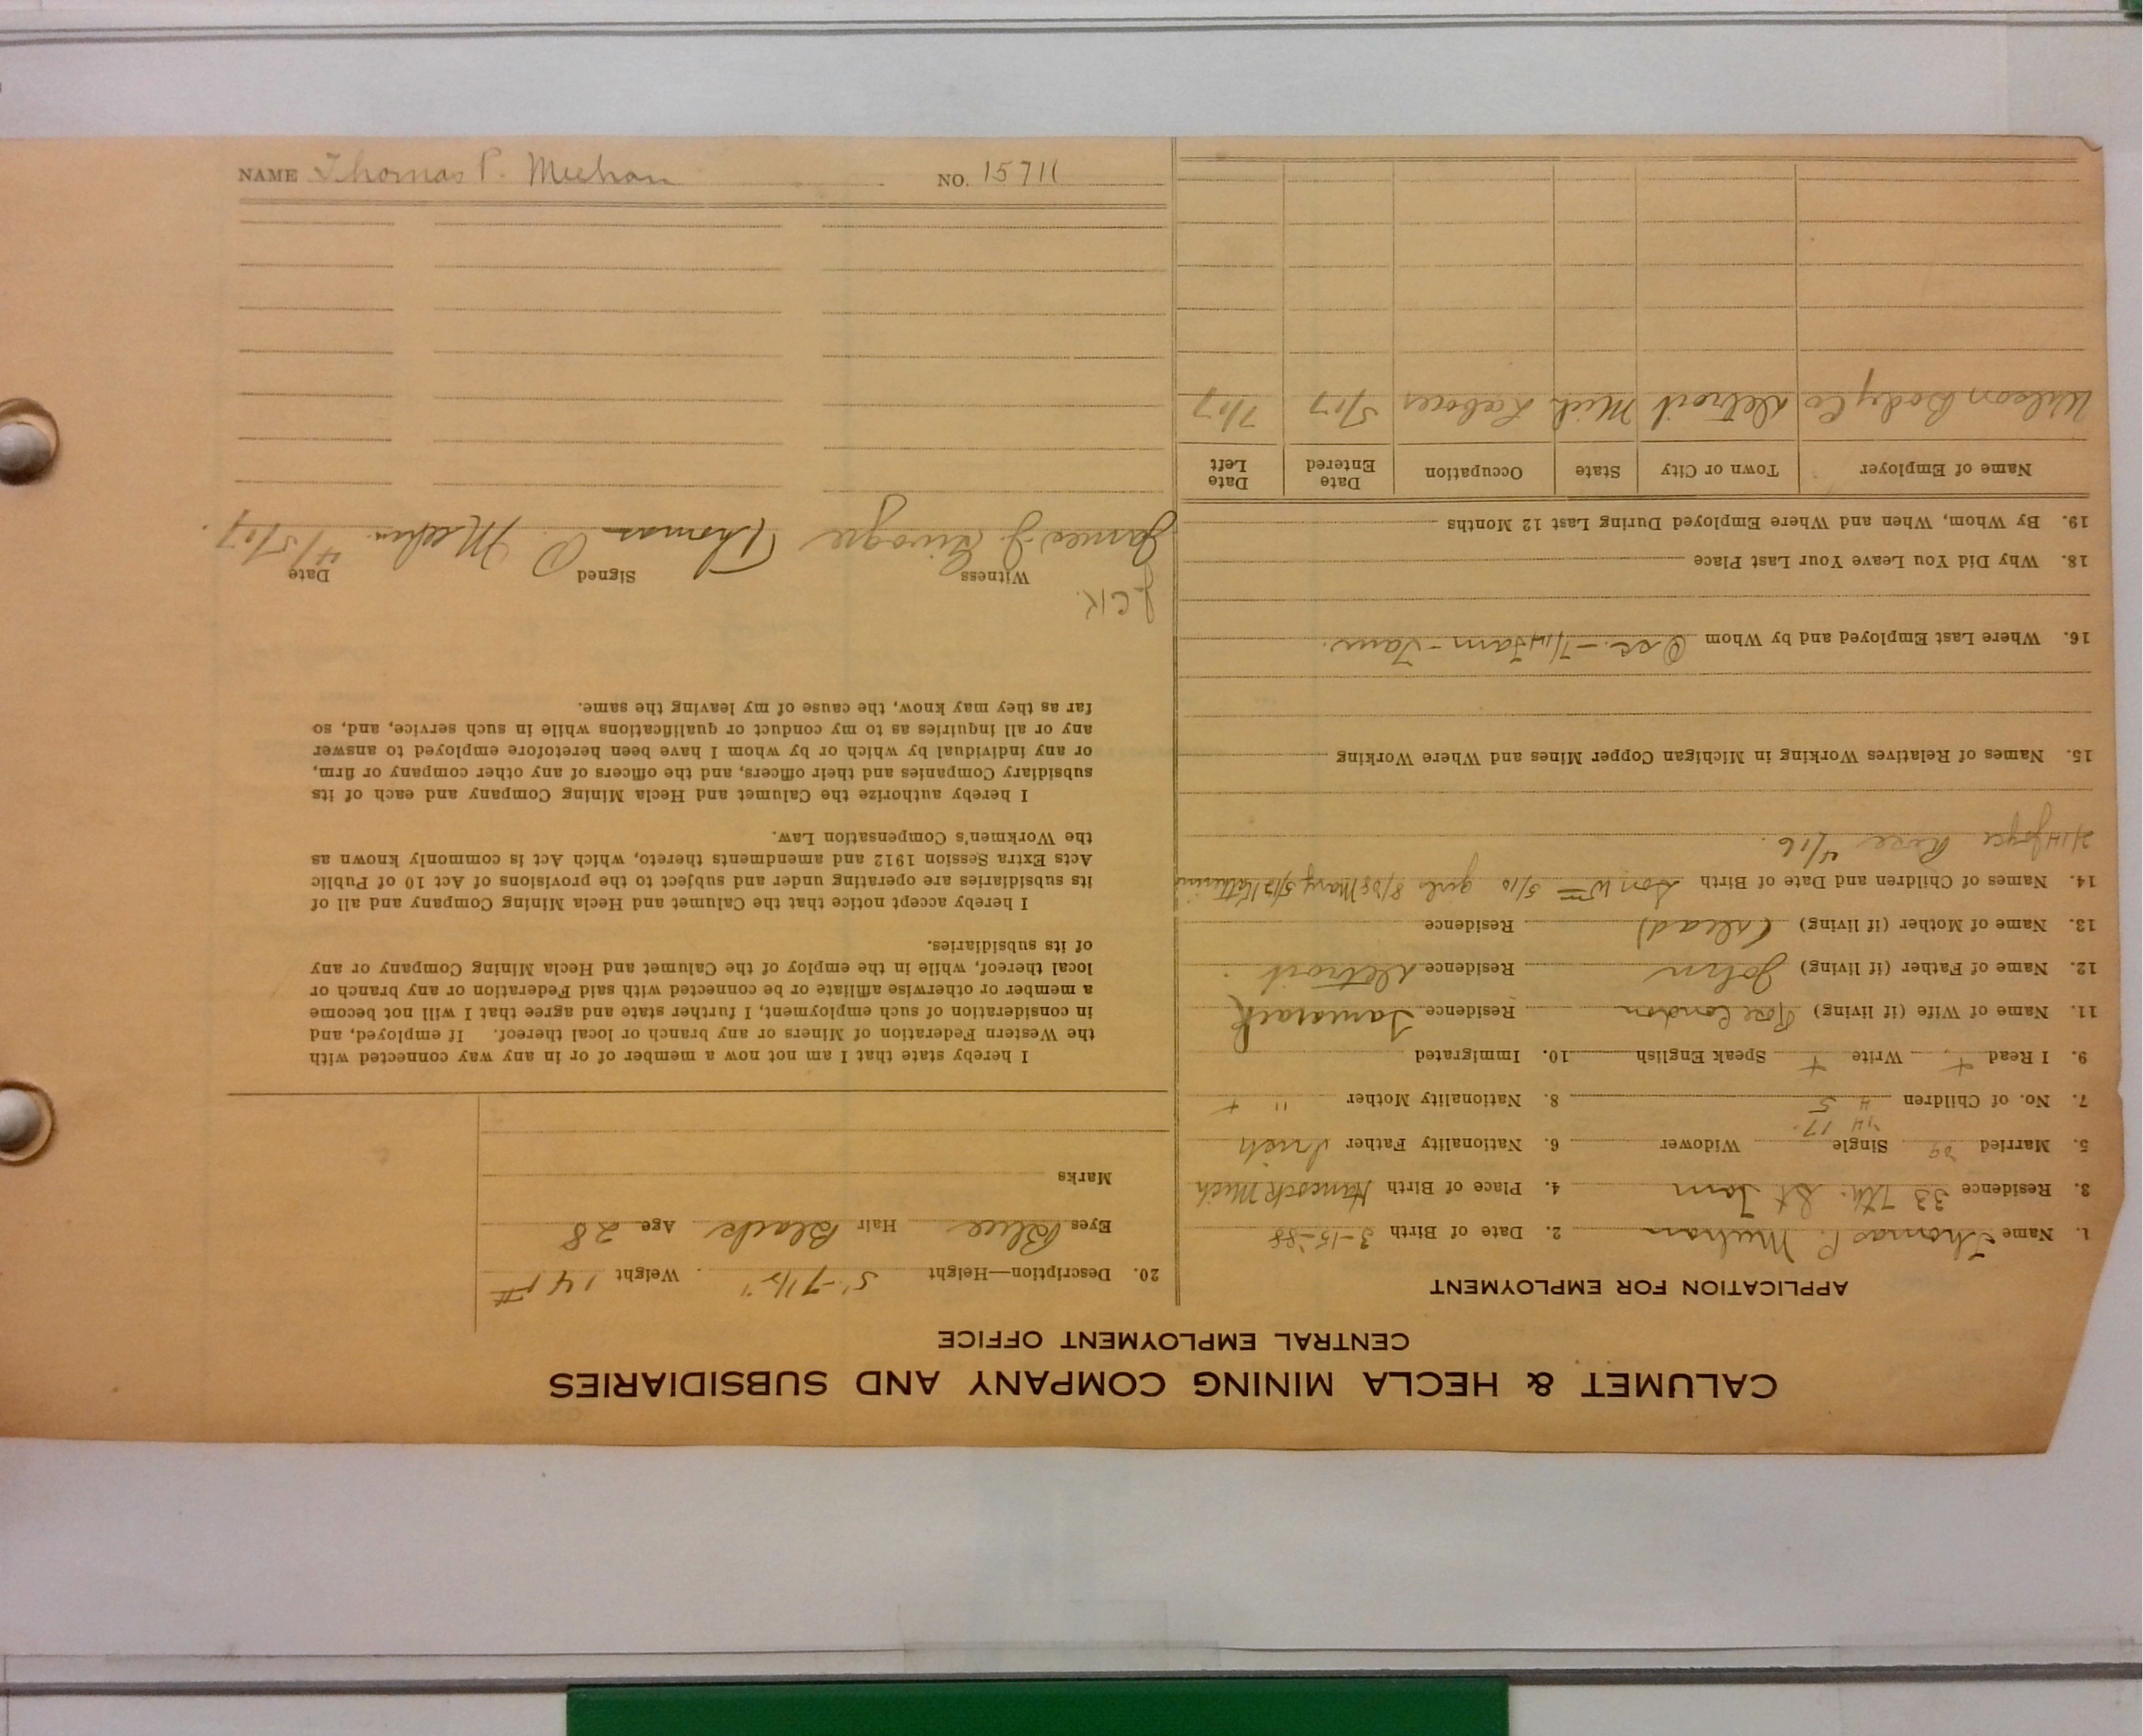 CALUMET & HECLA MINING COMPANY AND SUBSIDIARIES
CENTRAL EMPLOYMENT OFFICE
APPLICATION FOR EMPLOYMENT
1. Name Thomas P. Meehan 2. Date of Birth 3-15-88
3. Residence 33 7th. St Tam 4. Place of Birth Hancock Mich
5. Married '09 Single Widower 6. Nationality Father Irish
'14 17
7. No. of Children 4 5 8. Nationality Mother " +
9. I Read + Write + Speak English 10. Immigrated
11. Name of Wife (if living) Rose Condon Residence Tamarack
12. Name of Father (if living) John Residence Detroit
13. Name of Mother (if living) (dead) Residence
14. Names of Children and Date of Birth Son Wm 5/10 girls 8/08 Mary 5/12 Katherine
2/14 Joyce Rose 4/16.
15. Names of Relatives Working in Michigan Copper Mines and Where Working
16. Where Last Employed and by Whom Osc. - 7/14 Tam - Tam.
18. Why Did You Leave Your Last Place
19. By Whom, When and Where Employed During Last 12 Months
Name of Employer Town or City State Occupation Date Entered Date Left
Wilson Body Co Detroit Mich Laborer 5/17 7/17
20. Description—Height 5'-7 1/2" Weight 141#
Eyes Blue Hair Black Age 28
Marks
I hereby state that I am not now a member of or in any way connected with
the Western Federation of Miners or any branch or local thereof. If employed, and
in consideration of such employment, I further state and agree that I will not become
a member or otherwise affiliate or be connected with said Federation or any branch or
local thereof, while in the employ of the Calumet and Hecla Mining Company or any
of its subsidiaries.
I hereby accept notice that the Calumet and Hecla Mining Company and all of
its subsidiaries are operating under and subject to the provisions of Act 10 of Public
Acts Extra Session 1912 and amendments thereto, which Act is commonly known as
the Workmen's Compensation Law.
I hereby authorize the Calumet and Hecla Mining Company and each of its
subsidiary Companies and their officers, and the officers of any other company or firm,
or any individual by which or by whom I have been heretofore employed to answer
any or all inquiries as to my conduct or qualifications while in such service, and, so
far as they may know, the cause of my leaving the same.
J.C.K.
Witness Signed Date
James J. Thomas P. Meehan 4/5/17.
NAME Thomas P. Meehan NO. 15711